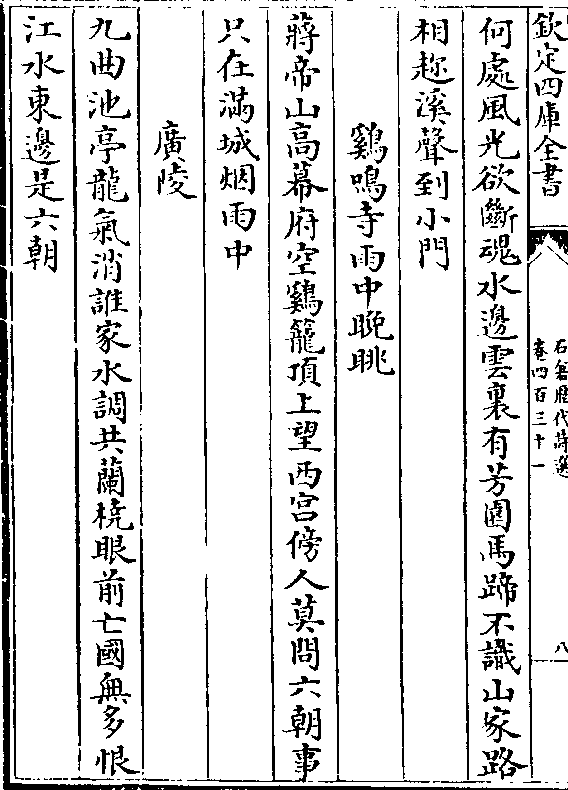 欽定四庫全書
石倉歴代詩選
卷四百三十一
八
何處風光欲斷魂水邊雲裏有芳園馬蹄不識山家路
相趂溪聲到小門
鷄鳴寺雨中晚眺
蔣帝山高幕府空鷄籠頂上望西宫傍人莫問六朝事
只在滿城烟雨中
廣陵
九曲池亭龍氣消誰家水調共蘭橈眼前亡國無多恨
江水東邊是六朝